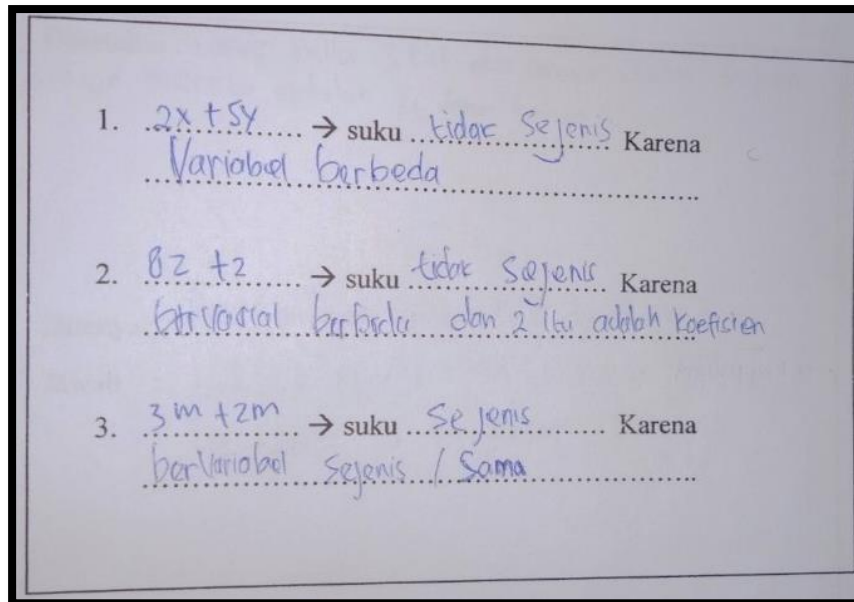 1. 2x + 5y → suku tidak sejenis Karena
Variabel berbeda
2. 8z + 2 → suku tidak sejenis Karena
berbeda dan 2 itu adalah koefisien
3. 3m + 2m → suku sejenis Karena
berVariabel sejenis / sama